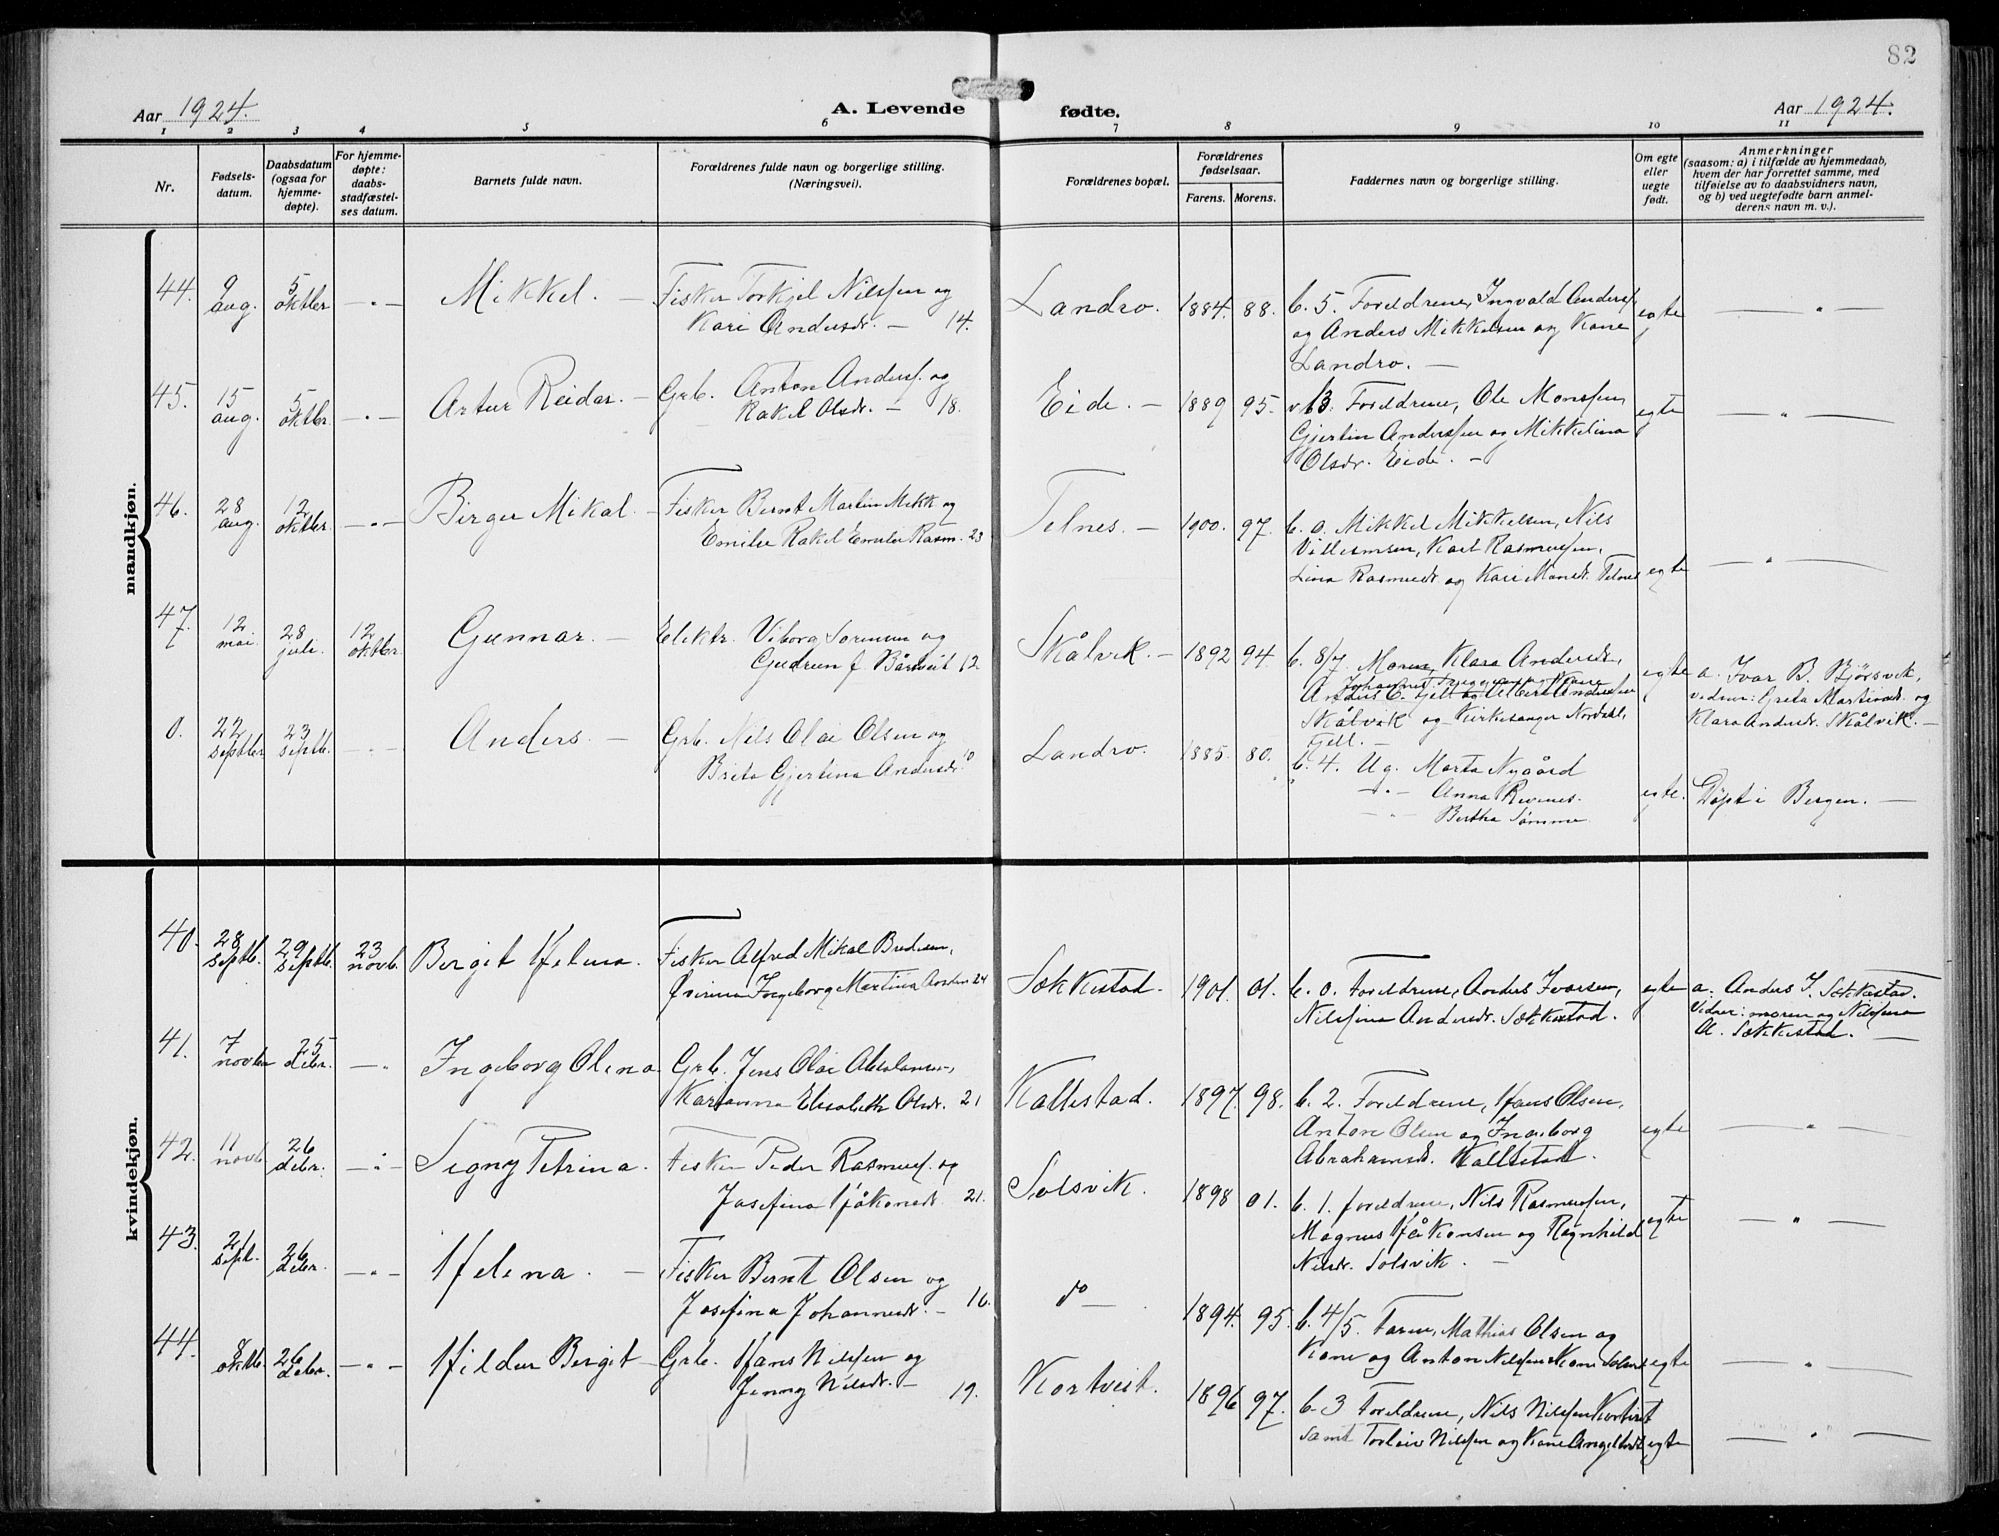 82
Aar 1924.
A. Levende fødte.
Aar 1924.
1 2 3 4 5 6 7 8 9 10 11
Nr.
Fødsels-
datum.
Daabsdatum
(ogsaa for
hjemme-
døpte).
For hjemme-
døpte:
daabs-
stadfæstel-
ses datum.
Barnets fulde navn.
Forældrenes fulde navn og borgerlige stilling.
(Næringsvei).
Forældrenes bopæl.
Forældrenes
fødselsaar.
Farens. Morens.
Faddernes navn og borgerlige stilling.
Om egte
eller
uegte
født.
Anmerkninger
(saasom: a) i tilfælde av hjemmedaab,
hvem der har forrettet samme, med
tilføielse av to daabsvidners navn,
og b) ved uegtefødte barn anmel-
derens navn m. v.).
mandkjøn.
44. 9 aug. 5 oktbr — " — Mikkel. —
Fisker Torkjel Nilssen og
Kari Andersdr. — 14.
Landro. 1884. 88.
b. 5. Foreldrene, Ingvald Anders.
og Anders Mikkelsen og Kone
Landro. —
egte — " —
45. 15 aug. 5 oktbr. — " — Artur Reidar. —
Grb. Anton Anders. og
Rakel Olsdr. — 18.
Eide. — 1889 95.
b 3. Foreldrene, Ole Monssen,
Gjertin Anderssen og Mikkelina
Olsdr. Eide. —
egte — " —
46. 28 aug. 12 oktbr. — " — Birger Mikal. —
Fisker Bernt Martin Mikk og
Emilie Rakel Rasm. 23
Telnes. — 1900. 97.
b. 0. Mikkel Mikkelsen, Nils
Villumsen, Karl Rasmussen,
Lina Rasmusdr og Kari Monsdr. Telnes
egte — " —
47. 12 mai. 28 juli. 12 oktbr. Gunnar. —
Elektr. Viborg Sørensen og
Gudrun f. 12
Skålvik. — 1892 94.
b. 8/7. Moren, Klara Andersdr,
Johannes og Kone
Anders
Skålvik og Kirkesanger Nordahl,
Fjell. —
egte
a. Ivar B. Bjørsvik,
vidner: Greta Martinsdr. og
Klara Andersdr. Skålvik. —
0. 22 septbr 23 septb. Anders. —
Grb. Nils Olai Olsen og
Brita Gjertina Andersdr. 10
Landro. 1885. 80.
b. 4. Ug. Marta Nygård
— " — Anna Revenes.
— " — Bertha Sømme.
egte. Døpt i Bergen. —
kvindekjøn.
40. 28 septb. 29 septb. 23 novb. Bergit Helena.
Fisker Alfred Mikal Bredesen,
Ingeborg Martina 24
Søkkestad. 1901. 01.
b. 0. Foreldrene, Anders Ivarsen,
Nilssina Andersdr. Søkkestad.
egte
a. Anders I. Søkkestad.
Vidner: moren og Nilssina
A. Søkkestad. —
41. 7 novbr 25 debr. — " Ingeborg Olena
Grb. Jens Olai Abrahamsen,
Karianna Elisabeth Olsdr. 21
Kallestad. 1897. 98.
b. 2. Foreldrene, Hans Olsen,
Anton Olsen og Ingeborg
Abrahamsdr. Kallestad.
egte — " —
42. 11 novb 26 debr. — " — Signy Petrina.
Fisker Peder Rasmuss. og
Josefina Håkonsdr. 21.
Solsvik. 1898 01.
b. 1. foreldrene, Nils Rasmussen,
Magnus Håkonsen og Ragnhild
Nilsdr. Solsvik. —
egte — " —
43. 21 sept. 26 debr. — " — Helena. —
Fisker Bernt Olsen og
Josefina Johannesdr. — 16.
do — 1894. 95.
b. 4/5. Faren, Mathias Olsen og
Kone og Anton Nilssen Kone Solsvik
egte — " —
44. 8 oktbr 26 debr. — " — Hildur Bergit —
Grb. Hans Nilssen og
Jenny Nilsdr. — 19.
Kortveit. 1896 97.
b. 3 Foreldrene, Nils Nilssen Kortveit
samt Torleiv Nilssen og Kone
egte — " —